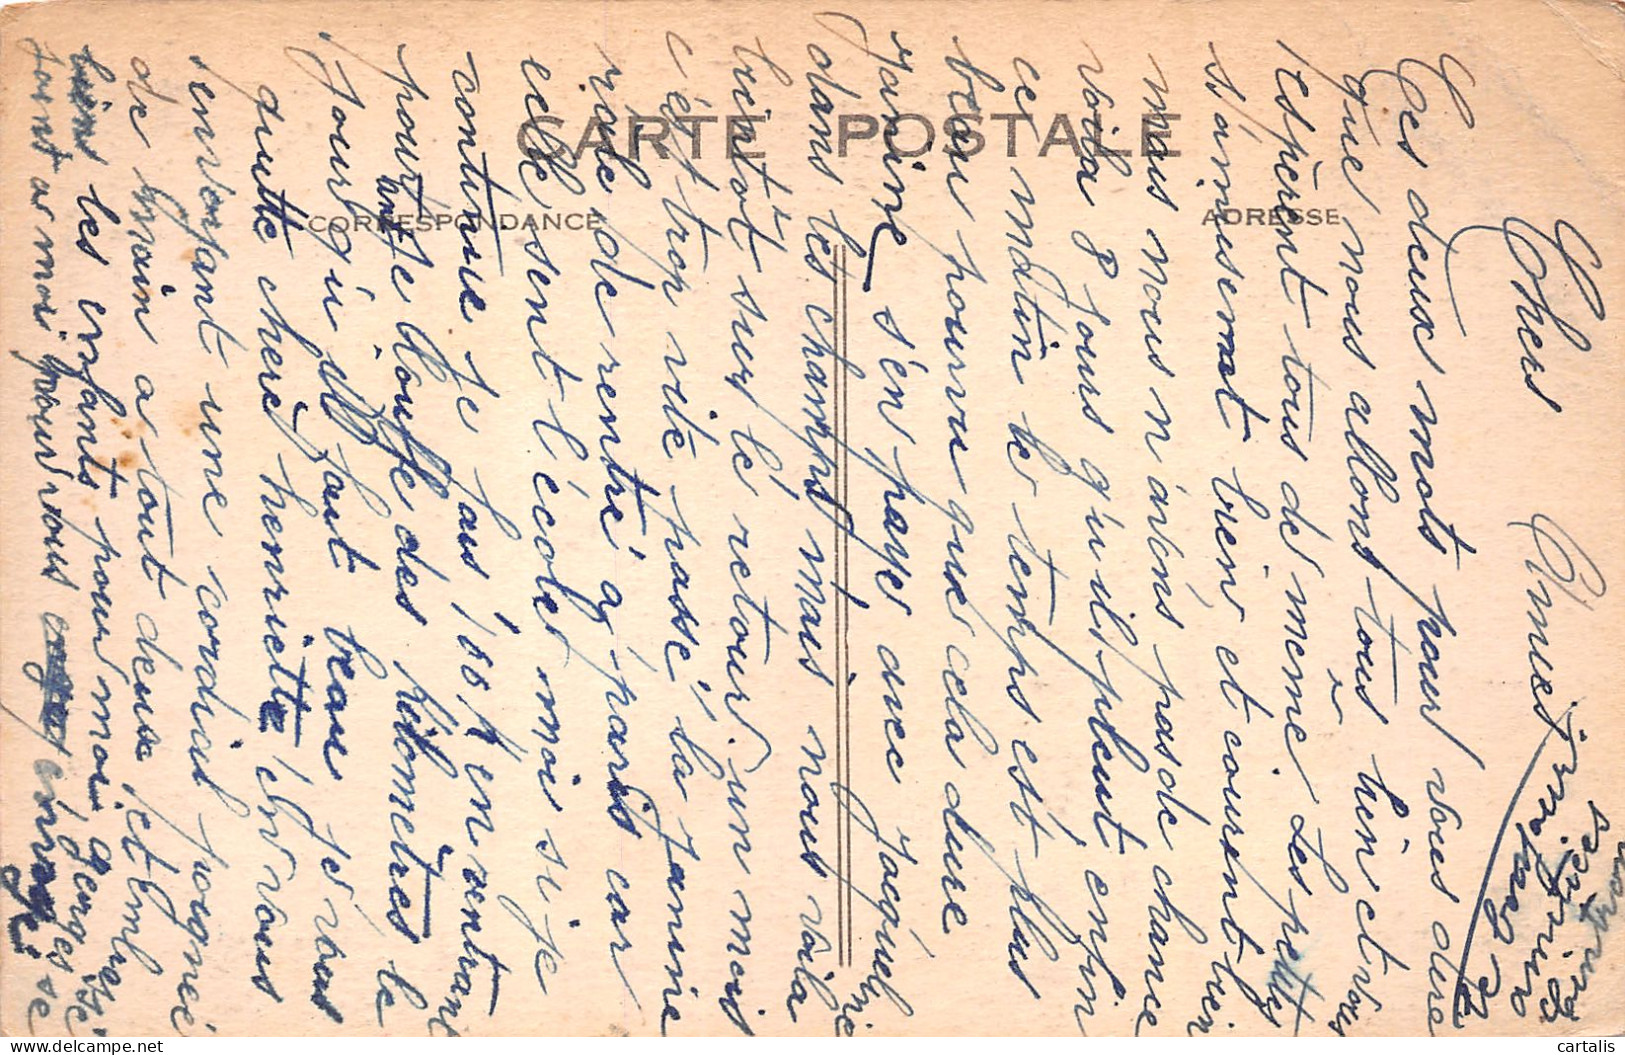 CARTE POSTALE
CORRESPONDANCE
ADRESSE
Chers Amies
Ces deux mots pour vous dire
que nous allons tous bien et vous
espèrent tous de même. Les petites
s'amusemnt bien et courent bien
mais nous n'avons pas de chance
voila 8 jours qu'il pleut enfin
ce matin le temps est plus
beau pourvu que cela dure
Janine s'en paye avec Jacqueline
dans les champs mais nous voila
bientot sur le retour. un mois
c'est trop vite passé la Janine
rale de rentré a paris car
elle sent l'école moi si je
continue je fais 100 k en rentrant
pourtant je bouffe des kilomètres le
jour qu'il faut beau je vous
quitte chere henriette en vous
envoyant une cordial poignée
de main a tout deux et embrassé
bien les enfants pour moi georges se
joint a moi pour vous
cartalis